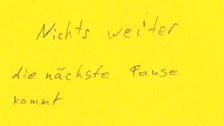 Nichts weiter
die nächste Pause
kommt